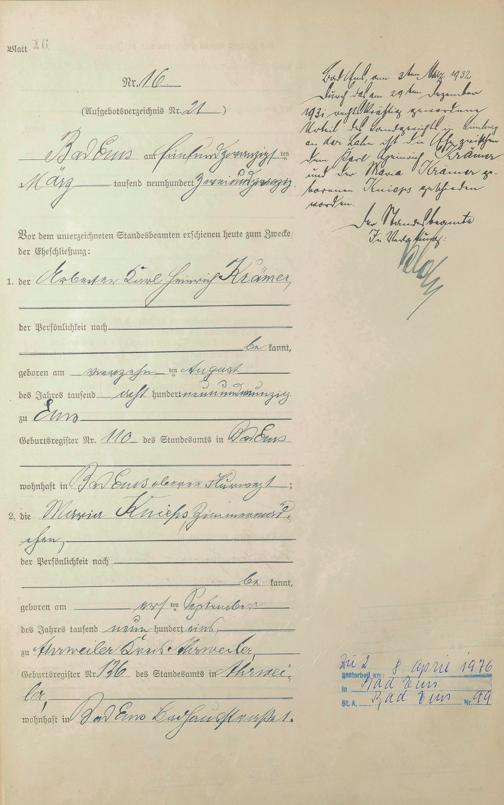 Blatt 16
Nr. 16
(Aufgebotsverzeichnis Nr. 21)
Bad Ems am fünfundzwanzigsten
März tausend neunhundert zweiundzwanzig
Vor dem unterzeichneten Standesbeamten erschienen heute zum Zwecke
der Eheschließung:
1. der Arbeiter Karl Heinrich Krämer,
der Persönlichkeit nach
be kannt,
geboren am vierzehn ten August
des Jahres tausend acht hundert neunundneunzig
zu Ems
Geburtsregister Nr. 110 des Standesamts in Bad Ems
wohnhaft in Bad Ems
2. die Maria Knieps, Zimmermäd-
chen,
der Persönlichkeit nach
be kannt,
geboren am ersten September
des Jahres tausend neun hundert eins
zu Ahrweiler Kreis Ahrweiler,
Geburtsregister Nr. 136 des Standesamts in Ahrwei-
ler,
wohnhaft in Bad Ems Badhausstraße 1.
Bad Ems, am 3ten März 1932
Durch das am 29ten Dezember
1931 rechtskräftig gewordene
Urteil des Landgerichts in Limburg
an der Lahn ist die Ehe zwischen
dem Karl Heinrich Krämer
und der Maria Krämer ge-
borenen Knieps geschieden
worden.
Der Standesbeamte
In Vertretung:
Zu 2
gestorben am 8 April 1976
in Bad Ems
St.A. Bad Ems Nr. 99